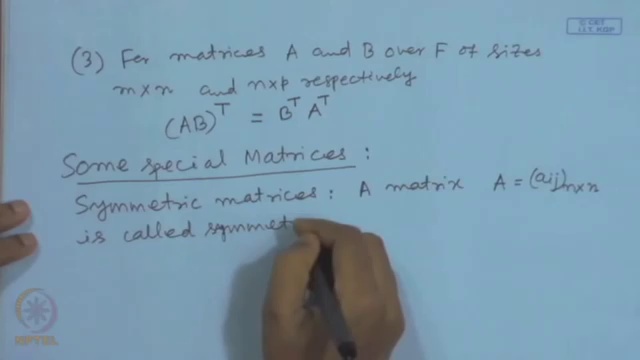 © CET
I.I.T. KGP
(3) For matrices A and B over F of sizes
m×n and n×p respectively
(AB)^T = B^T A^T
Some special Matrices :
Symmetric matrices : A matrix A = (aij)n×n
is called symmet
NPTEL